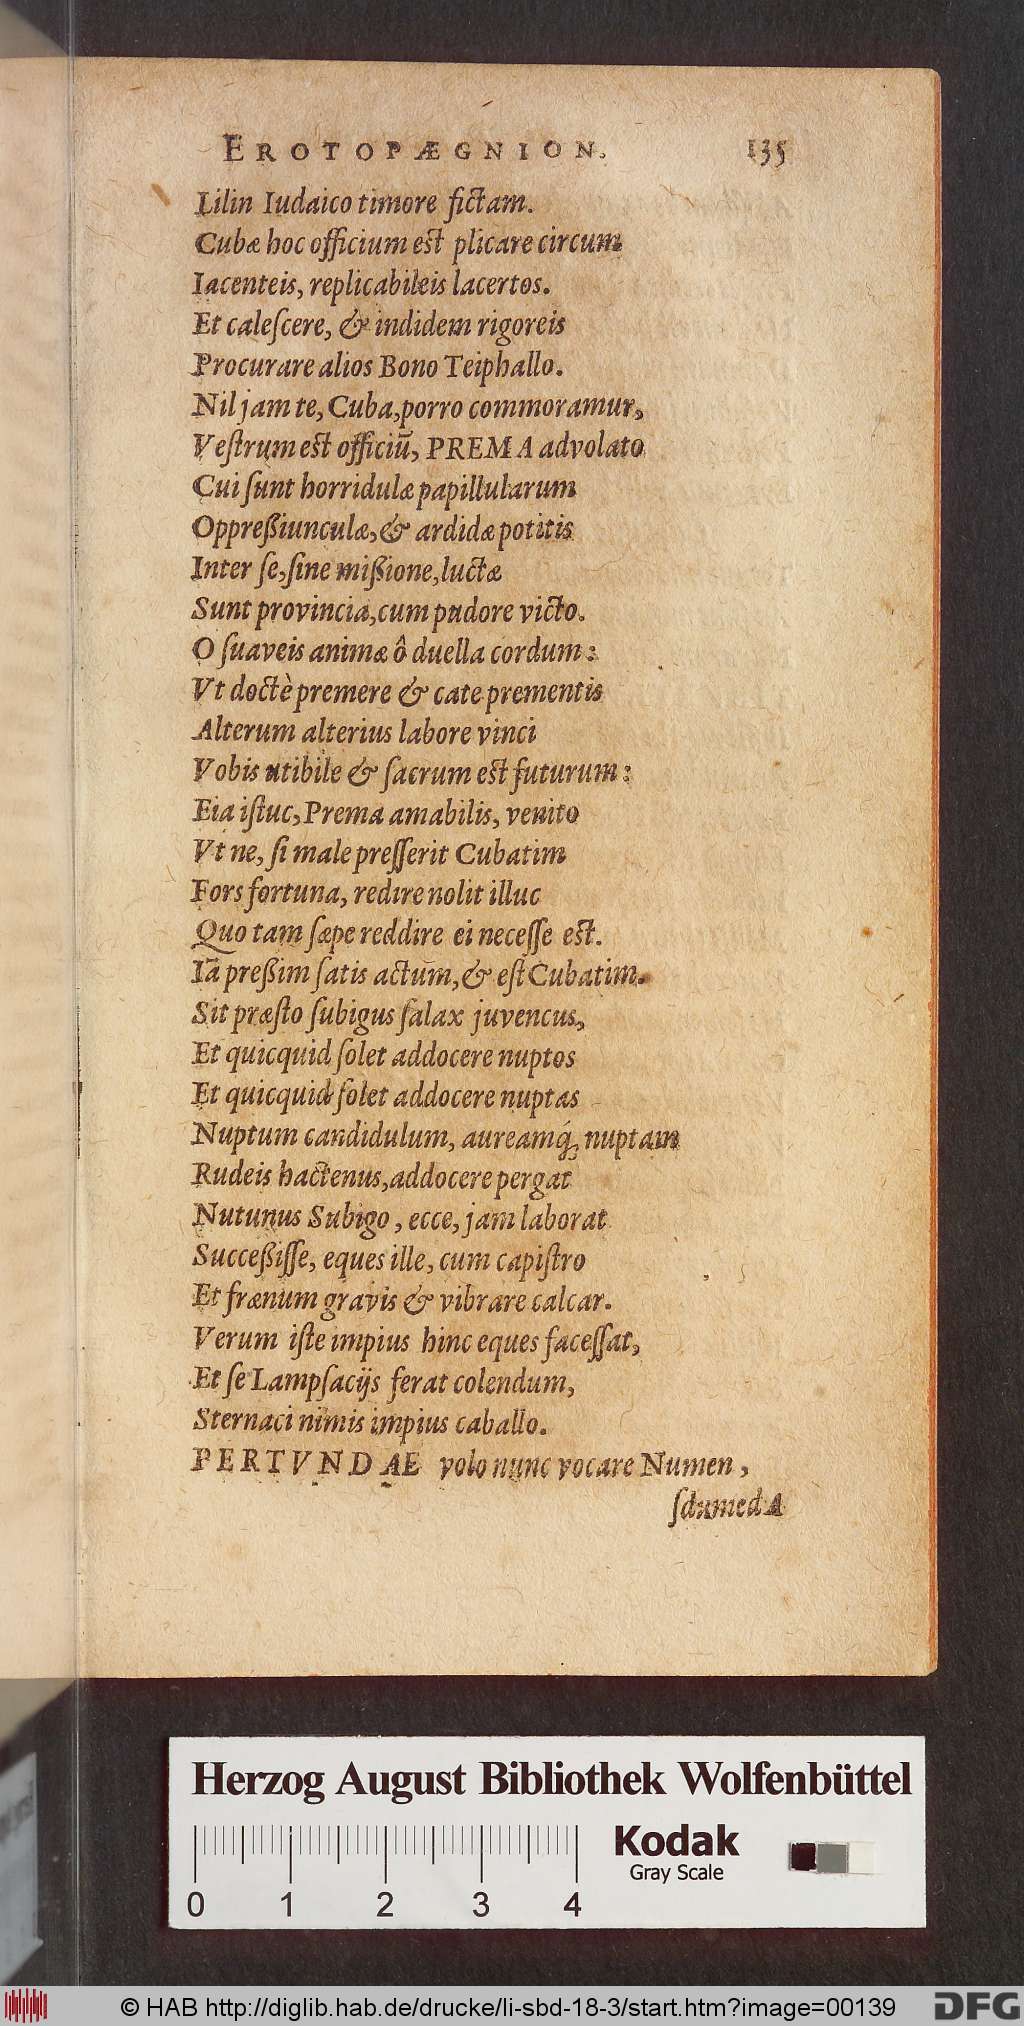 EROTOPÆGNION. 135
Lilin Iudaico timore fictam.
Cubæ hoc officium est plicare circum
Iacenteis, replicabileis lacertos.
Et caleſcere, & indidem rigoreis
Procurare alios Bono Teiphallo.
Nil jam te, Cuba, porro commoramur,
Veſtrum est officiū, PREMA advolato
Cui ſunt horridulæ papillularum
Oppreßiunculæ, & ardidæ potitis
Inter ſe, ſine mißione, luctæ
Sunt provincia, cum pudore victo.
O ſuaveis animæ ô duella cordum:
Vt doctè premere & cate prementis
Alterum alterius labore vinci
Vobis utibile & ſacrum est futurum:
Eia iſtuc, Prema amabilis, venito
Vt ne, ſi male preſſerit Cubatim
Fors fortuna, redire nolit illuc
Quo tam ſæpe reddire ei neceſſe est.
Iā preßim ſatis actum, & eſt Cubatim.
Sit præſto ſubigus ſalax juvencus,
Et quicquid ſolet addocere nuptos
Et quicquid ſolet addocere nuptas
Nuptum candidulum, aureamq́; nuptam
Rudeis hactenus, addocere pergat
Nutunus Subigo, ecce, jam laborat
Succeßiſſe, eques ille, cum capiſtro
Et frænum gravis & vibrare calcar.
Verum iſte impius hinc eques faceſſat,
Et ſe Lampſacijs ferat colendum,
Sternaci nimis impius caballo.
PERTVNDAE volo nunc vocare Numen,
ſdumed A
Herzog August Bibliothek Wolfenbüttel
Kodak
Gray Scale
0 1 2 3 4
© HAB http://diglib.hab.de/drucke/li-sbd-18-3/start.htm?image=00139 DFG